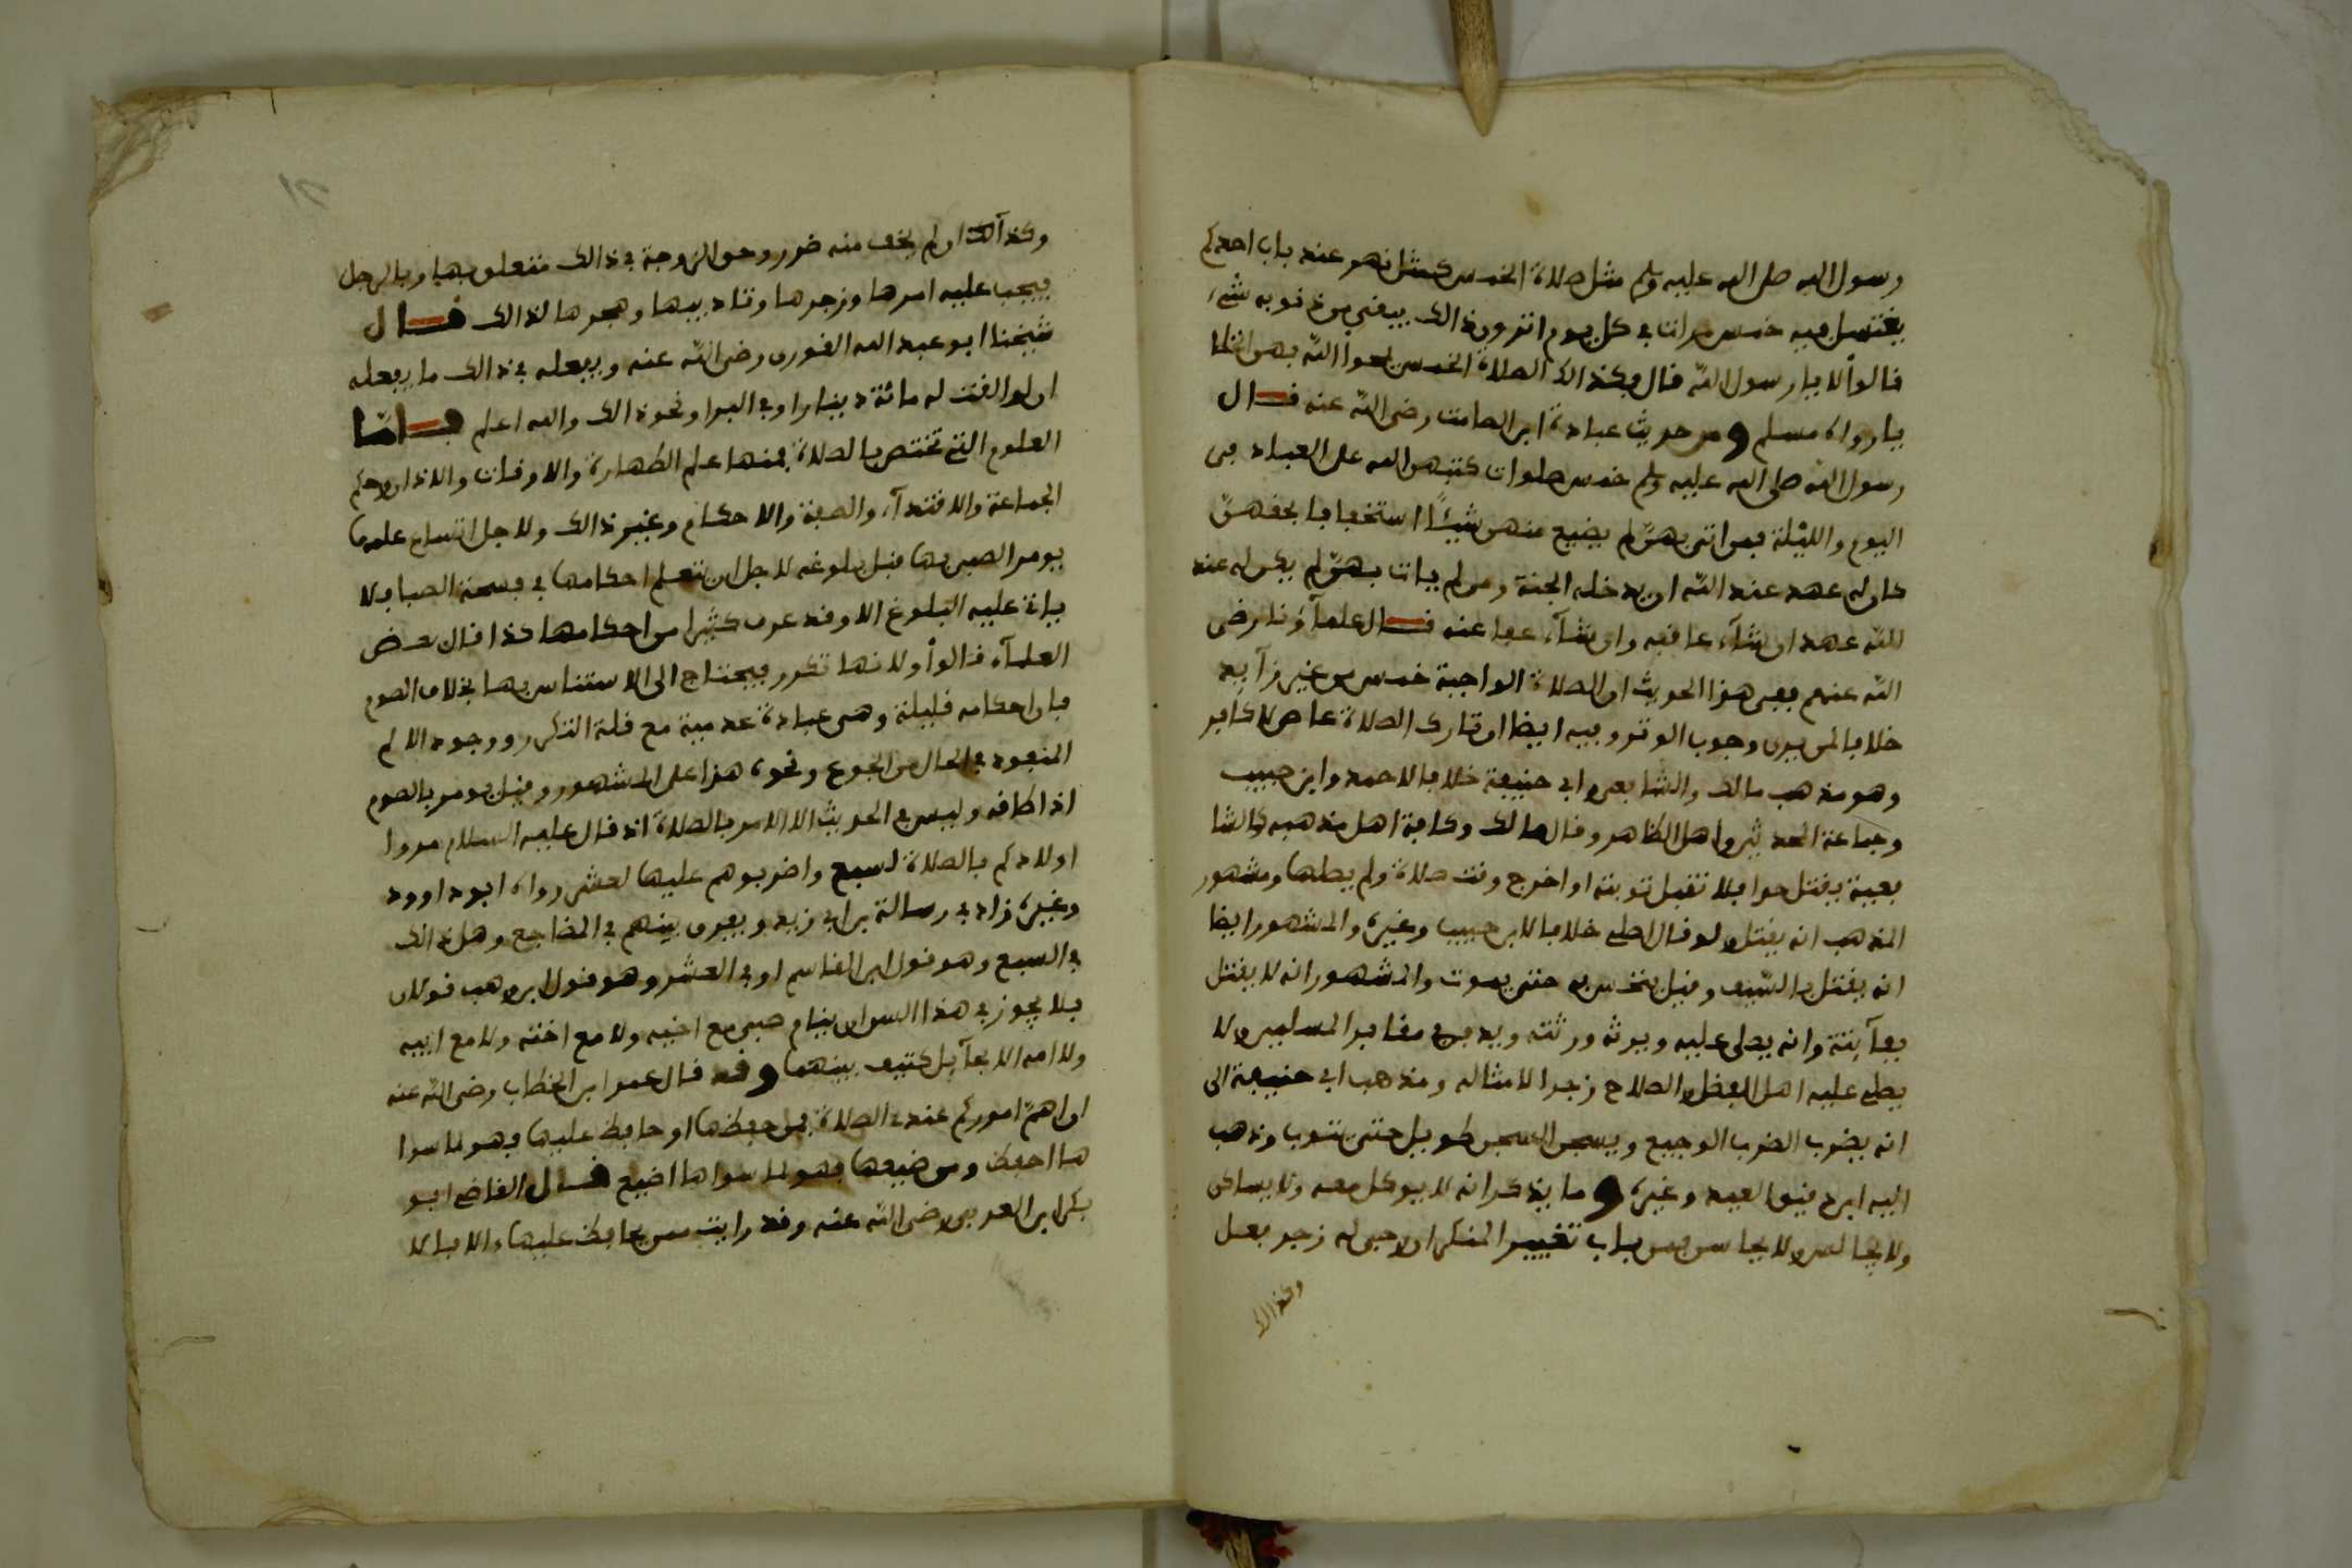 رسول الله صلى الله عليه وسلم مثل صلاة الخمس كمثل نهر عند باب احدكم
يغتسل فيه خمس مرات في كل يوم اترون ذالك يبقي من ذنوبه شيء
فالوا لا يا رسول الله قال وكذالك الصلاة الخمس يمحوا الله بهن الخطا
يا رواه مسلم ومن حديث عبادة ابن الصامت رضي الله عنه قال
رسول الله صلى الله عليه وسلم خمس صلوات كتبهن الله على العباد في
اليوم والليلة فمن اتى بهن لم يضيع منهن شيئا استخفافا بحقهن
كان له عهد عند الله ان يدخله الجنة ومن لم يات بهن لم يكن له عند
الله عهد ان شاء عاقبه وان شاء عفا عنه قال علماؤنا رضي
الله عنهم ففي هذا الحديث ان الصلاة الواجبة خمس من غير زايد
خلافا لمن يرى وجوب الوتر وفيه ايضا ان تارك الصلاة عاص لا كافر
وهو مذهب مالك والشافعي وابي حنيفة خلافا لاحمد وابن حبيب
وجماعة المحدثين واهل الظاهر وقال مالك وكافة اهل مذهبه كالشا
فعية يقتل حدا فلا تقبل توبته اذا خرج وقت صلاة ولم يصلها ومشهور
المذهب انه يقتل ولو قال اصلي خلافا لابن حبيب وغيره والمشهور ايضا
انه يقتل بالسيف وقيل ينخس به حتى يموت والمشهور انه لا يقتل
بفآيتة وانه يصلى عليه ويرثه ورثته ويدفن في مقابر المسلمين ولا
يصلي عليه اهل الفضل والصلاح زجرا لامثاله ومذهب ابي حنيفة الى
انه يضرب الضرب الوجيع ويسجن السجن طويل حتى يتوب وذهب
اليه ابن دقيق العيد وغيره وما يذكر انه لا يوكل معه ولا يساكن
ولا يجالس ولا يجا سر فمن باب تغيير المنكر ان رجي له زجر بعل
وكذالك
وكذآلك ان لم يخف منه ضرر وحق الزوجة في ذالك متعلق بها وبالرجل
فيجب عليه امرها وزجرها وتاديبها وهجرها لذالك قال
شيخنا ابو عبد الله القوري رضي الله عنه ويفعله في ذالك ما يفعله
ان لو القت له مائة دينار او في البير او نحو ذالك والله اعلم فاما
العلوم التي تختص بالصلاة فمنها علم الطهارة والاوقات والاذان وحكم
الجماعة والاقتدآء والصفة والاحكام وغير ذالك ولاجل اتساع علمها
يومر الصبي بها قبل بلوغه لاجل ان يتعلم احكامها في فسحة الصبا فلا
ياتي عليه البلوغ الا وقد عرف كثيرا من احكامها كذا قال بعض
العلمآء قالوا ولانها تكرر فيحتاج الى الاستئناس بها بخلاف الصوم
فان احكامه قليلة وهي عبادة عدمية مع قلة التكرر ووجود الالم
المنفود في الحال من الجوع ونحوه هذا على المشهور وقيل يومر بالصوم
اذا اطاقه وليس في الحديث الا الامر بالصلاة اذ قال عليه السلام مروا
اولادكم بالصلاة لسبع واضربوهم عليها لعشر رواه ابو داوود
وغيره زاد في رسالة بن ابي زيد ويفرق بينهم في المضاجع وهل ذالك
في السبع وهو قول ابن القاسم او في العشر وهو قول ابن وهب قولان
فلا يجوز في هذا السن ان ينام صبي مع اخيه ولا مع اخته ولا مع ابيه
ولا امه الا بحآيل كثيف بينهما وقد قال عمر ابن الخطاب رضي الله عنه
ان اهم اموركم عندي الصلاة فمن حفظها او حافظ عليها فهو لما سوا
ها احفظ ومن ضيعها فهو لما سواها اضيع قال القاضي ابو
بكر ابن العربي رضي الله عنه وقد رايت من يحافظ عليها الافا لا